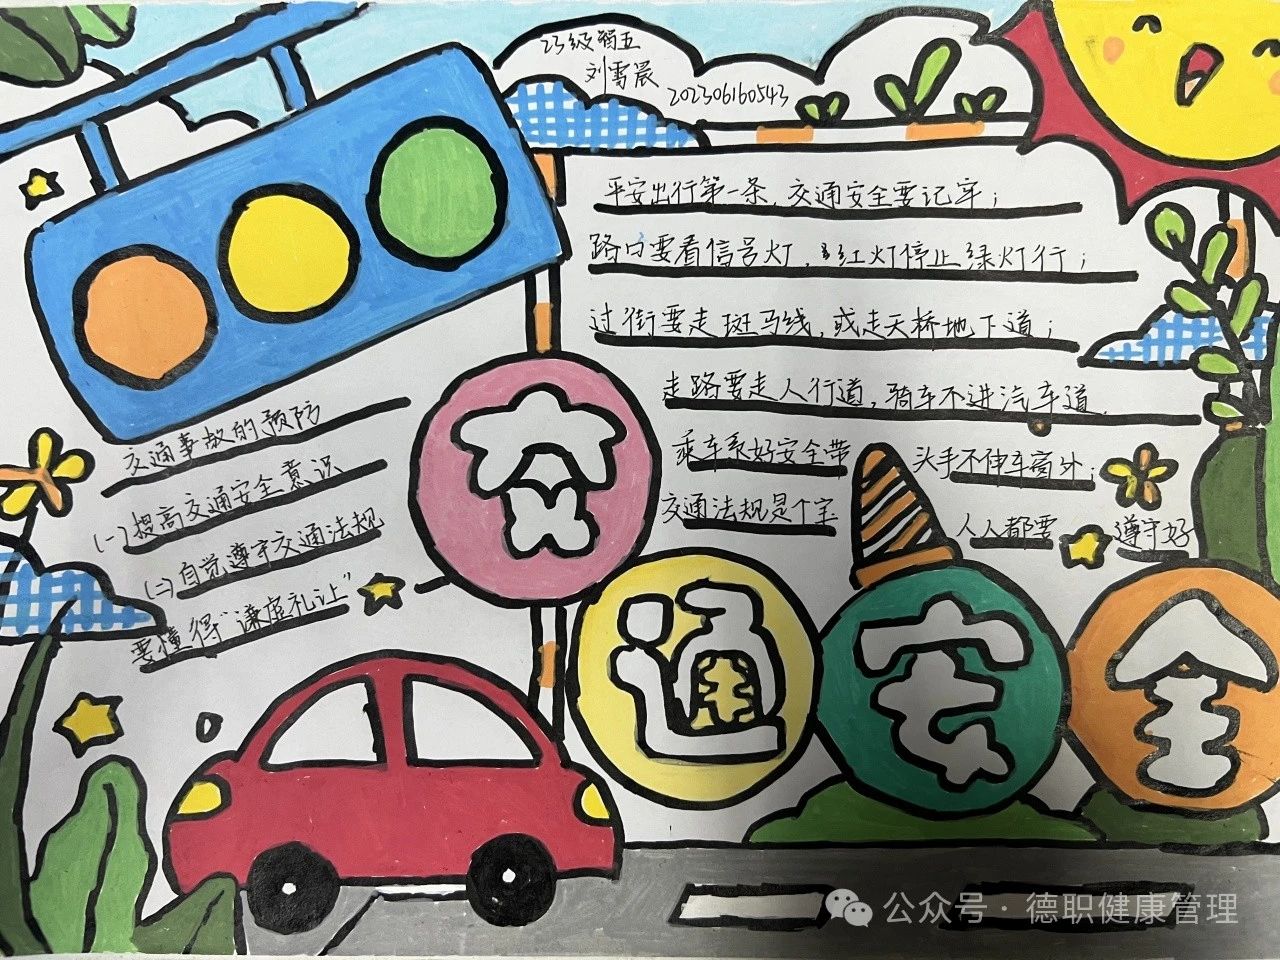 23级智五
刘雪晨
202306160543
平安出行第一条,交通安全要记牢;
路口要看信号灯,红灯停止绿灯行;
过街要走斑马线,或走天桥地下道;
走路要走人行道,骑车不进汽车道.
乘车系好安全带 头手不伸车窗外;
交通法规是个宝 人人都要 遵守好
交通事故的预防
(一)提高交通安全意识
(二)自觉遵守交通法规
要懂得"谦虚礼让"
交通安全
公众号·德职健康管理